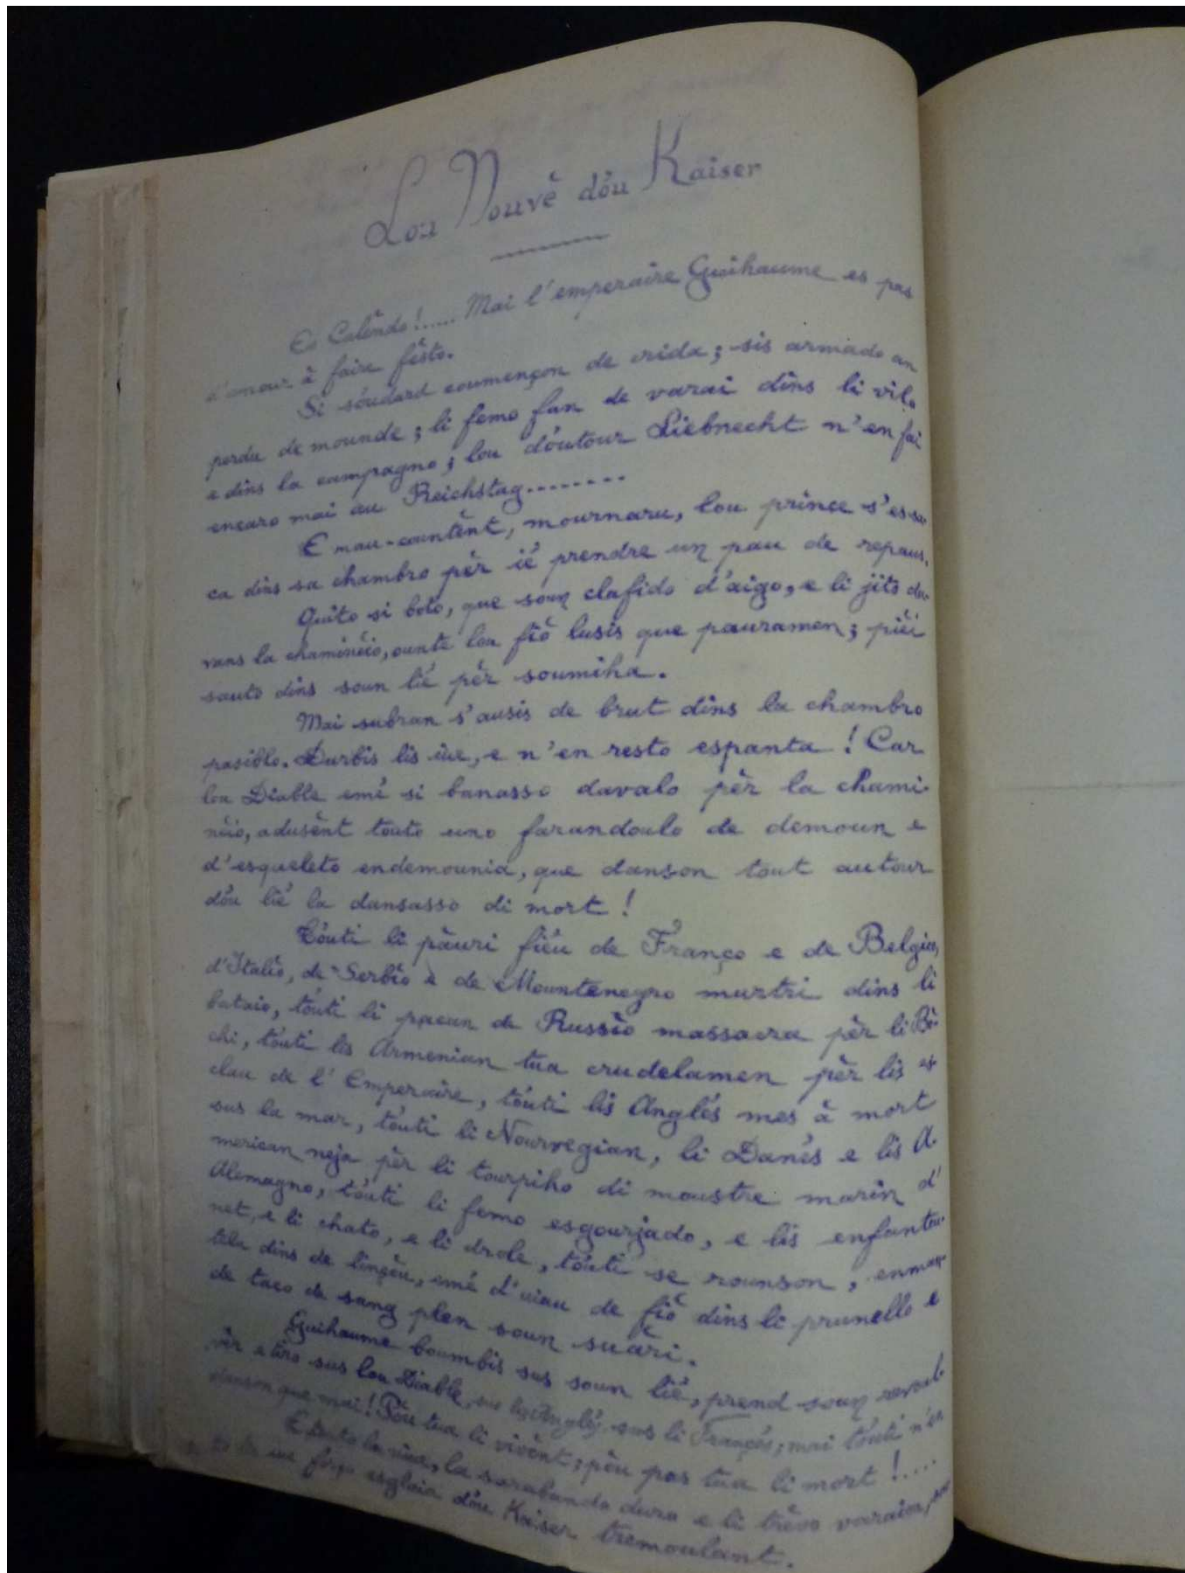 Lou Nouvè dóu Kaiser
Es Calèndo!..... Mai l'emperaire Guihaume es pas
d'imour à faire fèsto.
Si sóudard coumençon de crida; sis armado an
perdu de mounde; li femo fan de varai dins li vilo
e dins la campagno; lou dóutour Liebnecht n'en fai
encaro mai au Reichstag........
E mau-countènt, mournaru, lou prince s'es sa-
ca dins sa chambro pèr ié prendre un pau de repaus.
Quito si boto, que soun clafido d'aigo, e li jito da-
vans la chaminèio, ounte lou fiò lusis que pauramen; pièi
sauto dins soun lié pèr soumiha.
Mai subran s'ausis de brut dins la chambro
pasiblo. Durbis lis iue, e n'en resto espanta! Car
lou Diable emé si banasso davalo pèr la chami-
nèio, adusènt touto uno farandoulo de demoun e
d'esqueleto endemounia, que danson tout autour
dóu lié la dansasso di mort!
Tóuti li pàuri fiéu de Franço e de Belgico,
d'Italìo, de Serbìo e de Mountenegro murtri dins li
bataio, tóuti li pacan de Russìo massacra pèr li Bò-
chi, tóuti lis Armenian tua crudelamen pèr lis es-
clau de l'Emperaire, tóuti lis Anglés mes à mort
sus la mar, tóuti li Nourvegian, li Danés e lis A-
merican neja pèr li tourpiho di moustre marin d'
Alemagno, tóuti li femo esgourjado, e lis enfantou-
net, e li chato, e li drole, tóuti se rounson, enman-
tela dins de linçòu, emé d'uiau de fiò dins li prunello e
de taco de sang plen soun suàri.
Guihaume boumbis sus soun lié, prend soun revoul-
vèr e tiro sus lou Diable, sus lis Anglés, sus li Francés; mai tóuti n'en
danson que mai! Pòu tua li vivènt; pòu pas tua li mort!....
E touto la niue, la sarabando duro e li trèvo varaion,
iue fèr esglaia dóu Kaiser tremoulant.